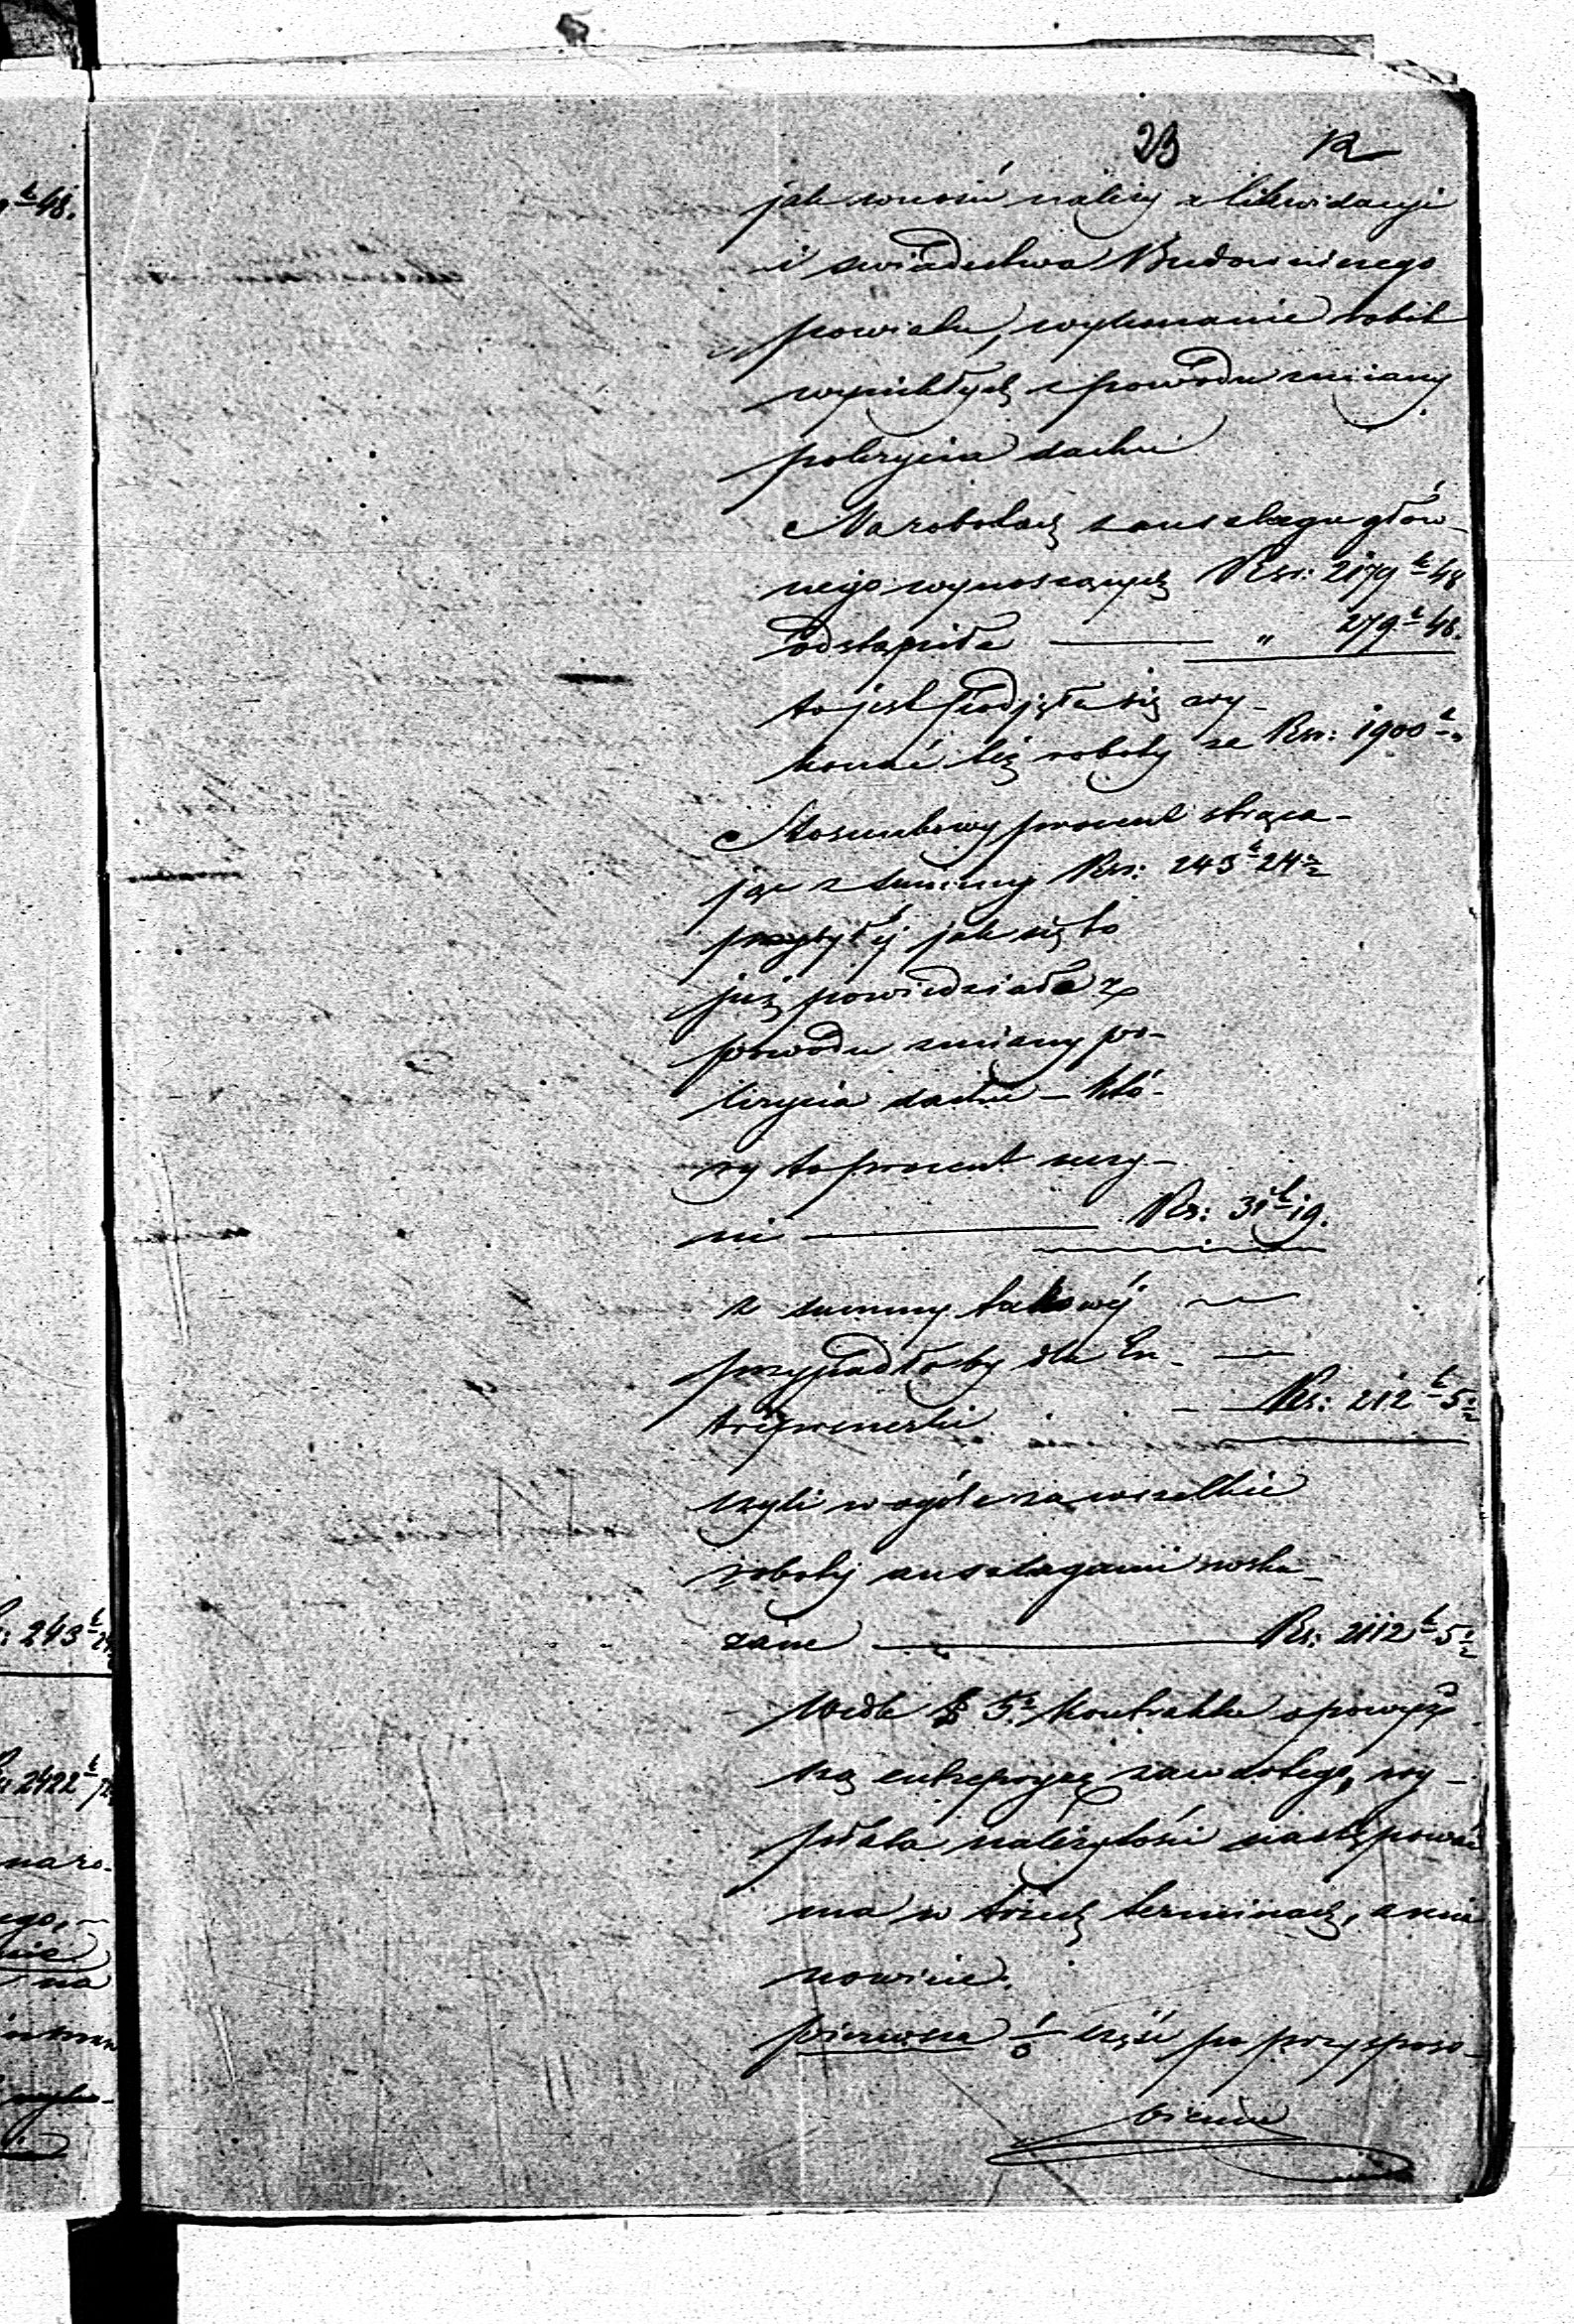 k 48.
23 12
jak wnosić należy z likwidacyi
i swiadectwa Budowniczego
powiatu, wykonanie robót
wynikłych z powodu zmiany
pokrycia dachu
Na robotach z anszlagu głów-
nego wynoszących Rsr: 2179 k 48
odstąpiła " 279 k 48.
to jest podjęła się wy-
konać też roboty za Rsr: 1900 k „
Stosunkowy procent strąca-
jąc z summy Rsr: 243 k 24½
przybyłéj jak się to
już powiedziało z
powodu zmiany po-
krycia dachu – któ-
ry to procent czy-
ni Rs: 31 k 19.
z summy takowéj
przypadłoby dla En-
trepreneski Rs: 212 k 5½
czyli w ogóle za wszelkie
roboty anszlagami wska-
zane Rs: 2112 k 5½
Wedle § 5º Kontraktu o powyż-
szą entrepryzę zawartego, wy-
płata należytości następować
ma w trzech terminach, a mia
nowicie:
pierwsza część po przysposo-
bieniu
: 243 k 24
2422 k 72
naro-
ego, –
nie
na